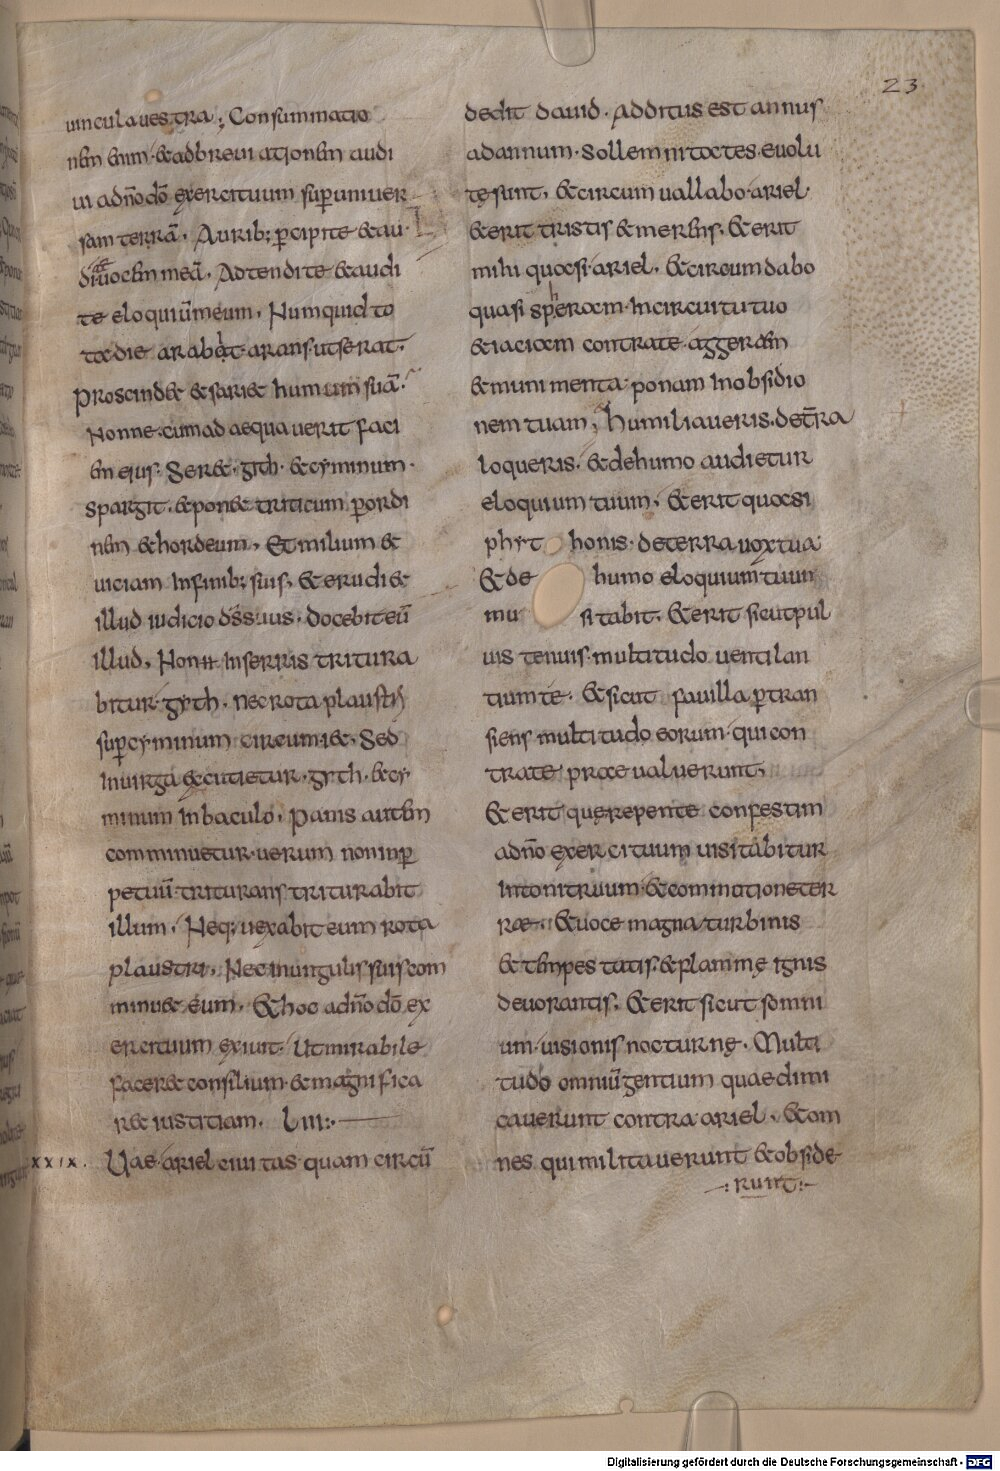 23
uincula uestra; Consummatio
nem enim · & adbreuiationem audi
ui a dño dō exercituum sup uniuer
sam terrā, Aurib; pcipite & au
dite uocem meā, Adtendite & audi
te eloquiū meum, Numquid to
ta die arabit arans ut serat,
proscindet & sariet humum suā.
Nonne cum adaequauerit faci
em ejus · seret · gith · & cyminum ·
sparg&it · & ponet triticum p ordi
nem & hordeum, Et milium &
uiciam In finib; suis, & erudiet
illud iudicio dš suus · docebit eū
illud, Non In serris tritura
bitur gyth · nec rota plaustri
sup cyminum circumiet, sed
In uirga excutietur · gyth · & cy
minum In baculo, panis autem
comminuetur · uerum non in p
petuū triturans triturabit
illum, Neq; uexabit eum rota
plaustri, Nec in ungulis suis com
minuet eum, & hoc a dño dō ex
ercituum exiuit, Ut mirabile
faceret consilium & magnifica
ret iustitiam,
xxix. Uae ariel ciuitas quam circū
dedit dauid · additus est annus
ad annum · sollemnitates euolu
te sunt, & circumuallabo ariel
& erit tristis & merens, & erit
mihi quasi ariel, & circumdabo
quasi spheram In circuitu tuo
& iaciam contra te aggerem
& munimenta ponam In obsidio
nem tuam, humiliaueris · de tr̄ra
loqueris, & de humo audietur
eloquium tuum, & erit quasi
phyt honis · de terra uox tua
& de humo eloquium tuum
mu sitabit, & erit sicut pul
uis tenuis multitudo uentilan
tium te, & sicut fauilla ptran
siens multitudo eorum qui con
tra te praeualuerunt,
& erit que repente confestim
a dño exercituum uisitabitur
In tonitruum & commotione ter
rae, & uoce magna turbinis
& tempestatis, & flammę ignis
deuorantis, & erit sicut somni
um uisionis nocturnę, Multi
tudo omniū gentium quae dimi
cauerunt contra ariel, & om
nes qui militauerunt & obside
runt
Digitalisierung gefördert durch die Deutsche Forschungsgemeinschaft - DFG